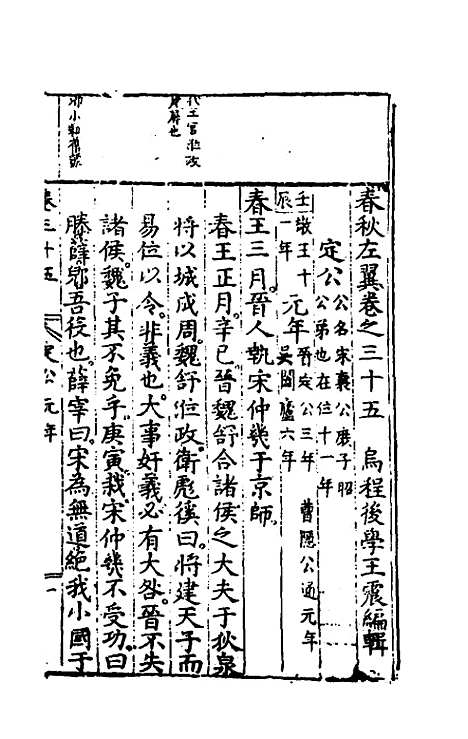 春秋左翼卷之三十五 烏程後學王震編輯
定公 公名宋襄公庶子昭
公弟也在位十五年
壬辰 敬王十一年 元年 晉定公三年 曹隱公通元年
吳闔廬六年
春王三月晉人執宋仲幾于京師
春王正月辛巳晉魏舒合諸侯之大夫于狄泉
將以城成周魏舒涖政衛彪徯曰將建天子而
易位以令非義也大事奸義必有大咎晉不失
諸侯魏子其不免乎庚寅栽宋仲幾不受功曰
滕薛郳吾役也薛宰曰宋為無道絕我小國于
代王官涖政
卷三十五 定公元年 一